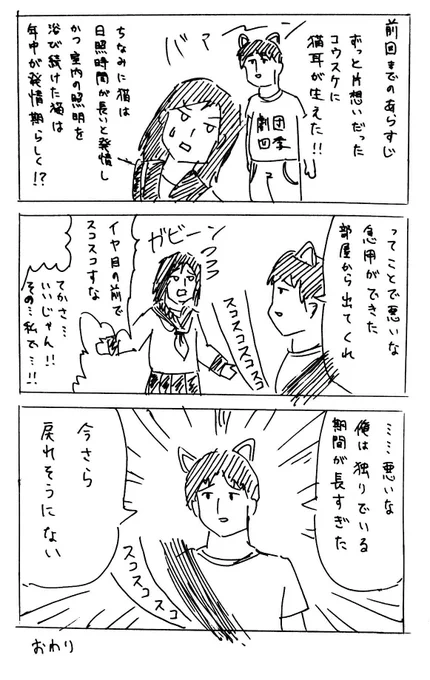 前回までのあらすじ
ずっと片想いだった
コウスケに
猫耳が生えた!!
バァーン
劇団
四季
ちなみに猫は
日照時間が長いと発情し
かつ室内の照明を
浴び続けた猫は
年中が発情期らしく!?
ってことで悪いな
急用ができた
部屋から出てくれ
ガビーン
スコスコスコスコ
イヤ目の前で
スコスコすな
てかさ…
いいじゃん!!
その…私で…!!
……悪いな
俺は独りでいる
期間が長すぎた
今さら
戻れそうにない
スコスコスコ
おわり